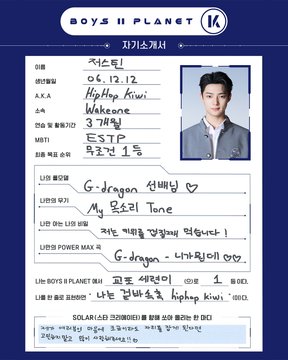 BOYS II PLANET K
자기소개서
이름 저스틴
생년월일 06.12.12
A.K.A HipHop Kiwi
소속 Wakeone
연습 및 활동기간 3개월
MBTI ESTP
최종 목표 순위 무조건 1등
나의 롤모델 G-dragon 선배님 ♡
나만의 무기 My 목소리 Tone
나만 아는 나의 비밀 저는 키위를 껍질째 먹습니다!
나만의 POWER MAX 곡 G-dragon - 니가뭔데 ♡♡.
나는 BOYS II PLANET 에서 교포 세련미 (으)로 1 등이다.
나를 한 줄로 표현하면 - 나는 겉바속촉 hiphop kiwi - (이)다.
SOLAR(스타 크리에이터)를 향해 쏘아 올리는 한 마디
제가 여러분의 마음에 조금이라도 자리를 잡게 된다면
고민하지말고 많이 사랑해주세요!!